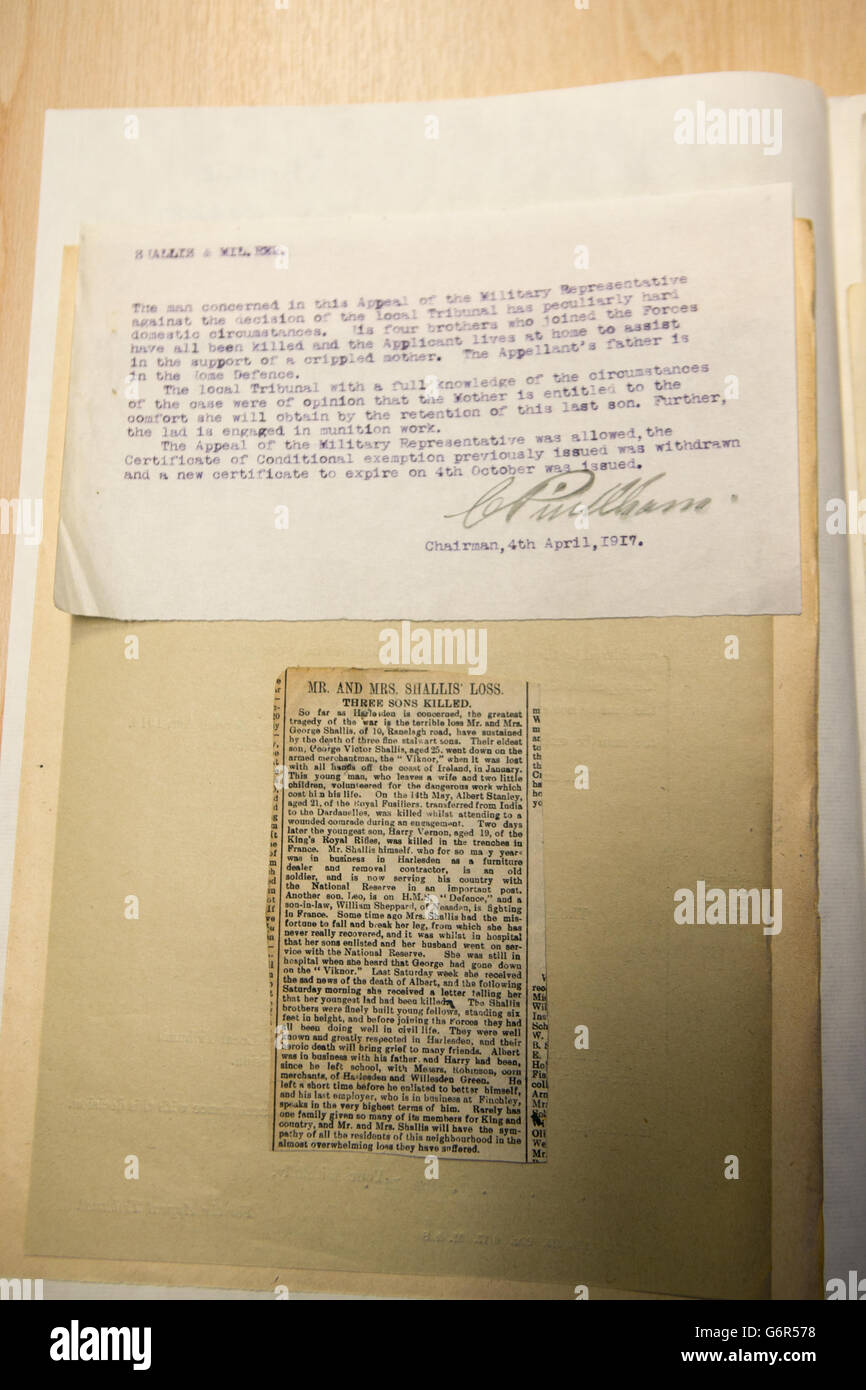 SHALLIS & MIL. REP.
The man concerned in this Appeal of the Military Representative
against the decision of the local Tribunal has peculiarly hard
domestic circumstances. His four brothers who joined the Forces
have all been killed and the Applicant lives at home to assist
in the support of a crippled mother. The Appellant's father is
in the Home Defence.
The local Tribunal with a full knowledge of the circumstances
of the case were of opinion that the Mother is entitled to the
comfort she will obtain by the retention of this last son. Further,
the lad is engaged in munition work.
The Appeal of the Military Representative was allowed, the
Certificate of Conditional exemption previously issued was withdrawn
and a new certificate to expire on 4th October was issued.
Chairman, 4th April, 1917.
MR. AND MRS. SHALLIS' LOSS.
THREE SONS KILLED.
So far as Harlesden is concerned, the greatest
tragedy of the war is the terrible loss Mr. and Mrs.
George Shallis, of 10, Ranelagh road, have sustained
by the death of three fine stalwart sons. Their eldest
son, George Victor Shallis, aged 25, went down on the
armed merchantman, the "Viknor," when it was lost
with all hands off the coast of Ireland, in January.
This young man, who leaves a wife and two little
children, volunteered for the dangerous work which
cost him his life. On the 14th May, Albert Stanley,
aged 21, of the Royal Fusiliers, transferred from India
to the Dardanelles, was killed whilst attending to a
wounded comrade during an engagement. Two days
later the youngest son, Harry Vernon, aged 19, of the
King's Royal Rifles, was killed in the trenches in
France. Mr. Shallis himself, who for so many years
was in business in Harlesden as a furniture
dealer and removal contractor, is an old
soldier, and is now serving his country with
the National Reserve in an important post.
Another son, Leo, is on H.M.S. "Defence," and a
son-in-law, William Sheppard, of Neasden, is fighting
in France. Some time ago Mrs. Shallis had the mis-
fortune to fall and break her leg, from which she has
never really recovered, and it was whilst in hospital
that her sons enlisted and her husband went on ser-
vice with the National Reserve. She was still in
hospital when she heard that George had gone down
on the "Viknor." Last Saturday week she received
the sad news of the death of Albert, and the following
Saturday morning she received a letter telling her
that her youngest lad had been killed. The Shallis
brothers were finely built young fellows, standing six
feet in height, and before joining the Forces they had
all been doing well in civil life. They were well
known and greatly respected in Harlesden, and their
heroic death will bring grief to many friends. Albert
was in business with his father, and Harry had been,
since he left school, with Messrs. Robinson, corn
merchants, of Harlesden and Willesden Green. He
left a short time before he enlisted to better himself,
and his last employer, who is in business at Finchley,
speaks in the very highest terms of him. Rarely has
one family given so many of its members for King and
country, and Mr. and Mrs. Shallis will have the sym-
pathy of all the residents of this neighbourhood in the
almost overwhelming loss they have suffered.
alamy
alamy
Image ID: G6R578
www.alamy.com